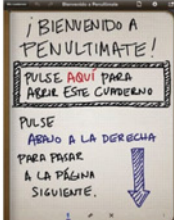 Bienvenido a Penultimate
¡BIENVENIDO A
PENULTIMATE!
PULSE AQUÍ PARA
ABRIR ESTE CUADERNO
PULSE
ABAJO A LA DERECHA
PARA PASAR
A LA PÁGINA
SIGUIENTE.